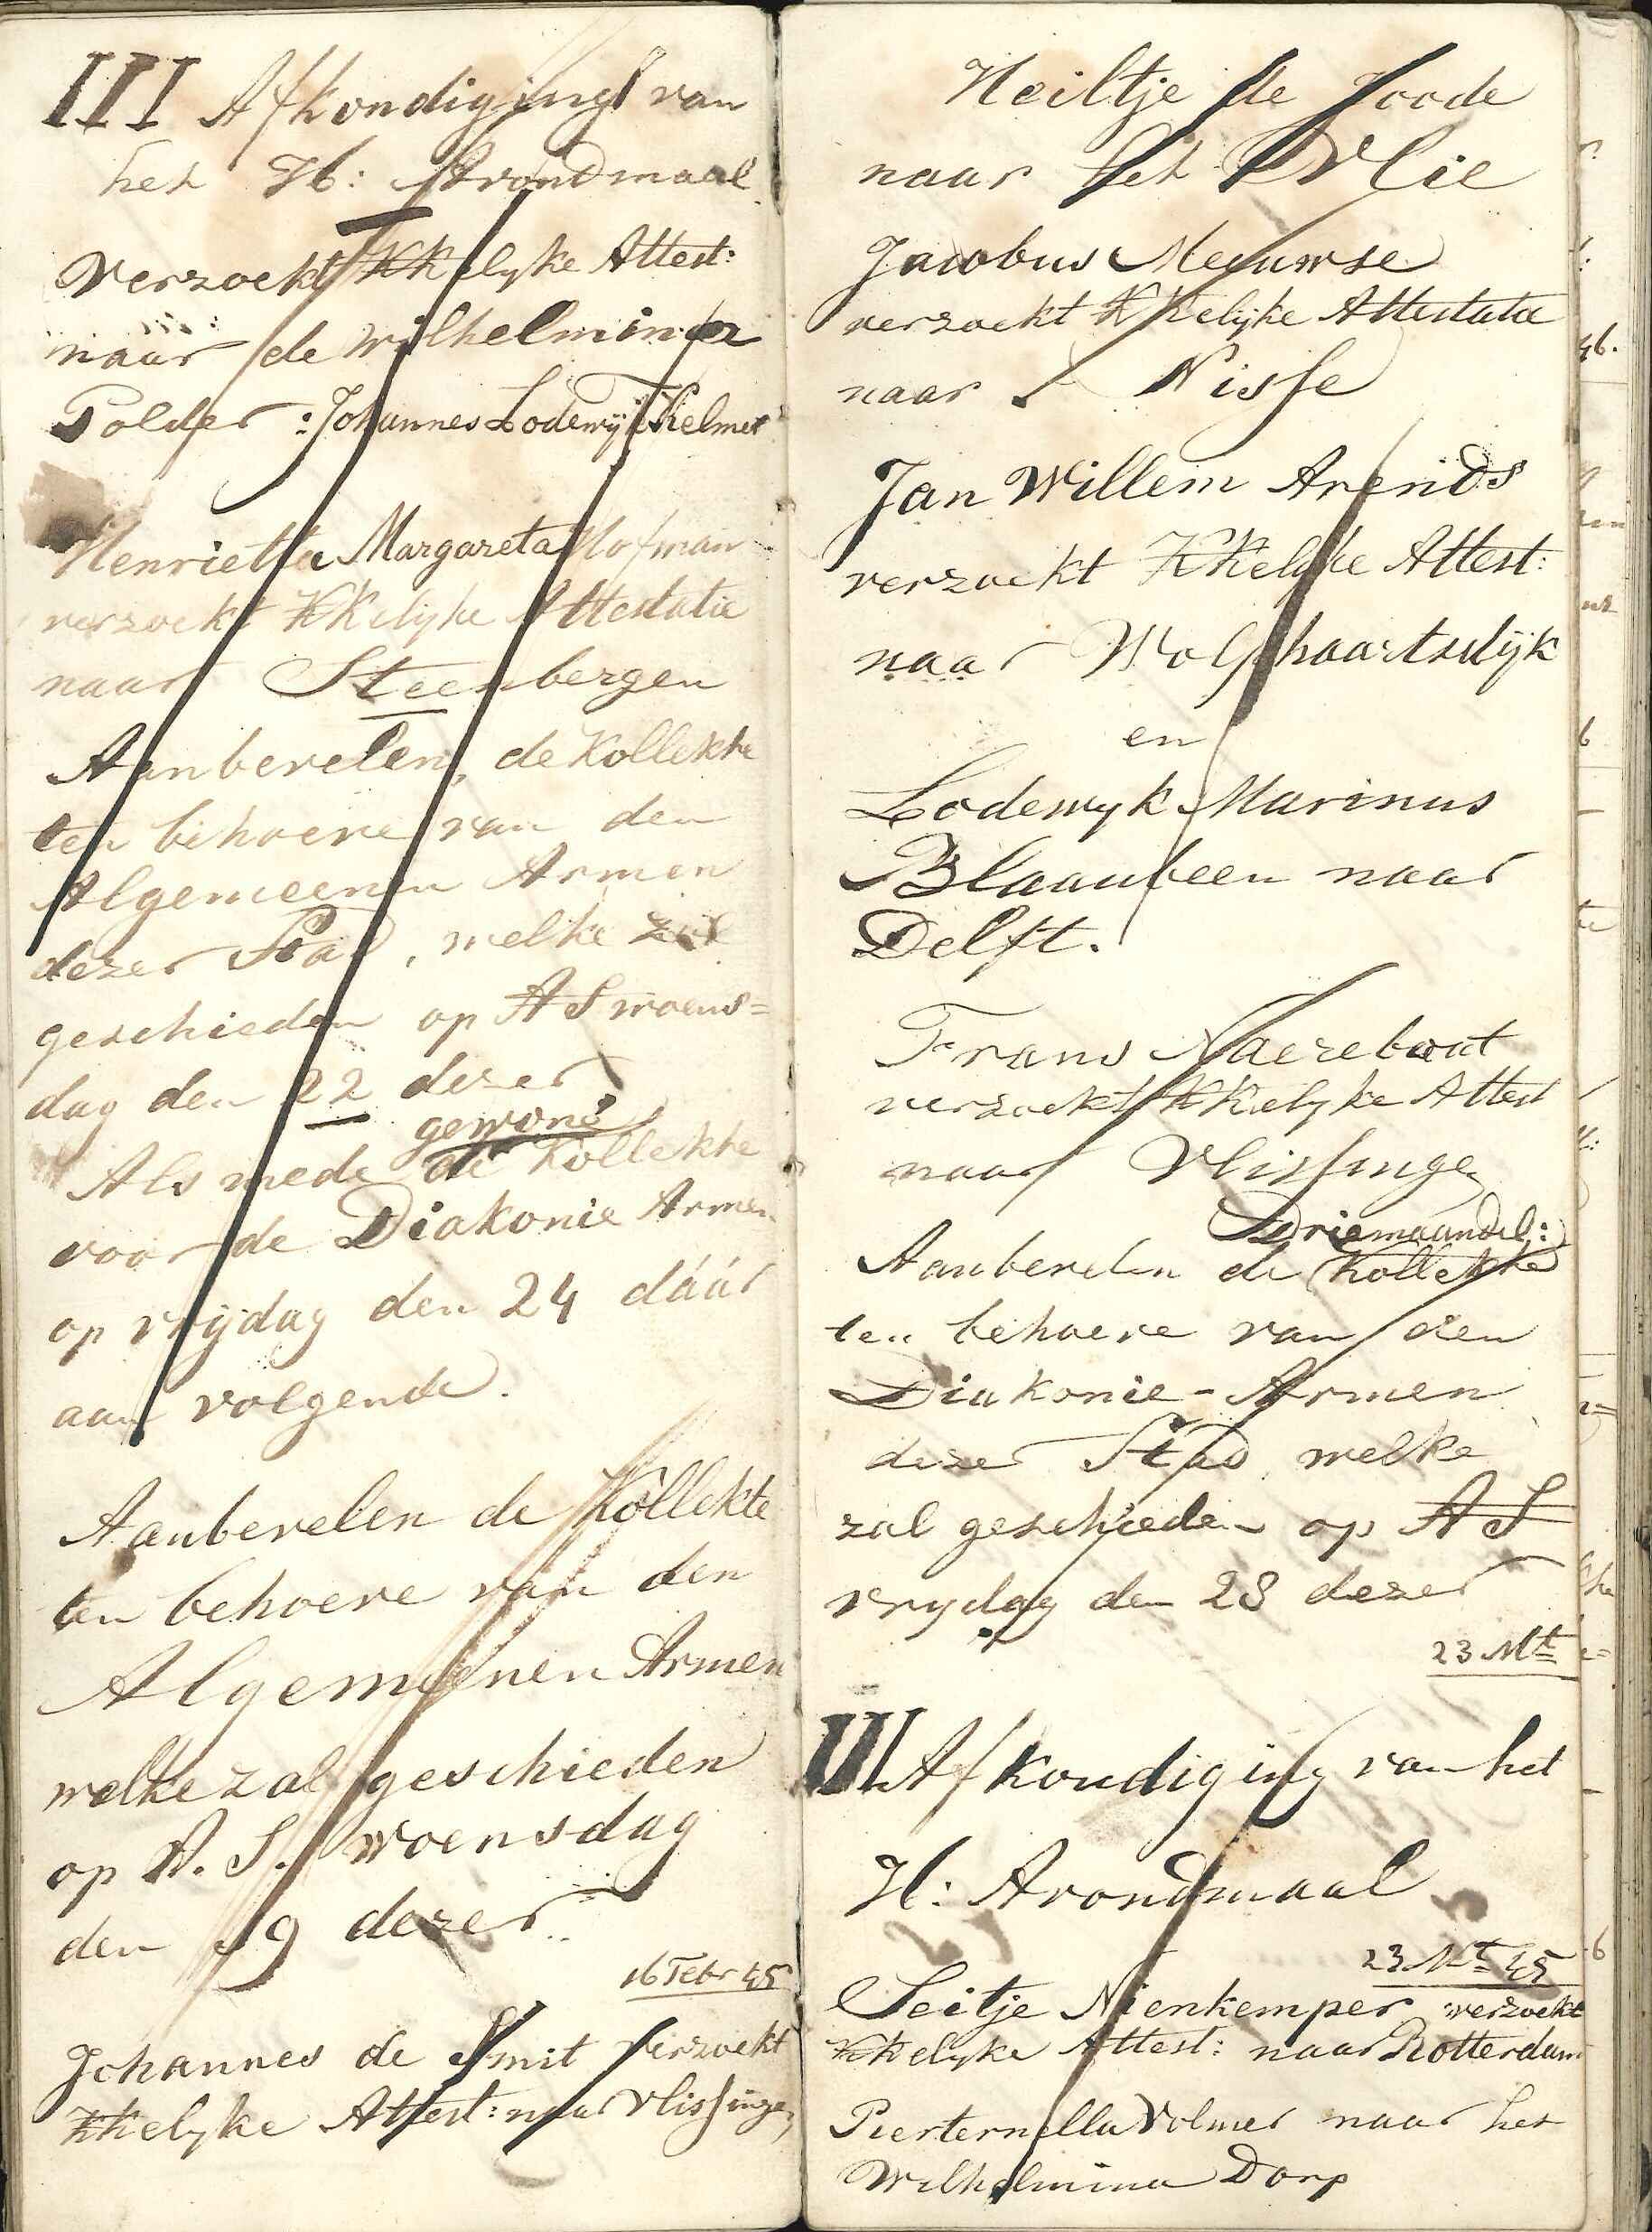 III Afkondiging van
het H: Avondmaal
Verzoekt KKelyke Attest:
naar de Wilhelmina
Polder : Johannes Lodewijk
Henrietta Margareta Hofman
verzoekt KKelijke Attestatie
naar Steenbergen
Aanbevelen, de Kollekte
ten behoeve van den
Algemeenen Armen
dezer Stad, welke zal
geschieden op A S woens=
dag den 22 dezer
gewone
Als mede de Kollekte
voor de Diakonie Armen
op vrijdag den 24 dáár
aan volgende.
Aanbevelen de Kollekte
ten behoeve van den
Algemeenen Armen
welke zal geschieden
op A. S. woensdag
den 19 dezer
16 Febr 45
Johannes de Smit verzoekt
KKelyke Attest: naar Vlissingen
Neiltje de Joode
naar het Vlie
Jacobus Meeuwse
verzoekt KKelijke Attestatie
naar Nisse
Jan Willem Arends
verzoekt KKelyke Attest:
naar Wolfhaartsdijk
en
Lodewyk Marinus
Blaaubeen naar
Delft.
Frans Naerebout
verzoekt KKelyke Attest
naar Vlissingen
Driemaandel:
Aanbevelen de Kollekte
ten behoeve van den
Diakonie-Armen
dezer Stad welke
zal geschieden op A S
vrydag den 28 dezer
23 Mt
III Afkondiging van het
H: Avondmaal
23 Mt 45
Seitje Nienkemper verzoekt
KKelyke Attest: naar Rotterdam
Pierternella Volmer naar het
Wilhelmina Dorp